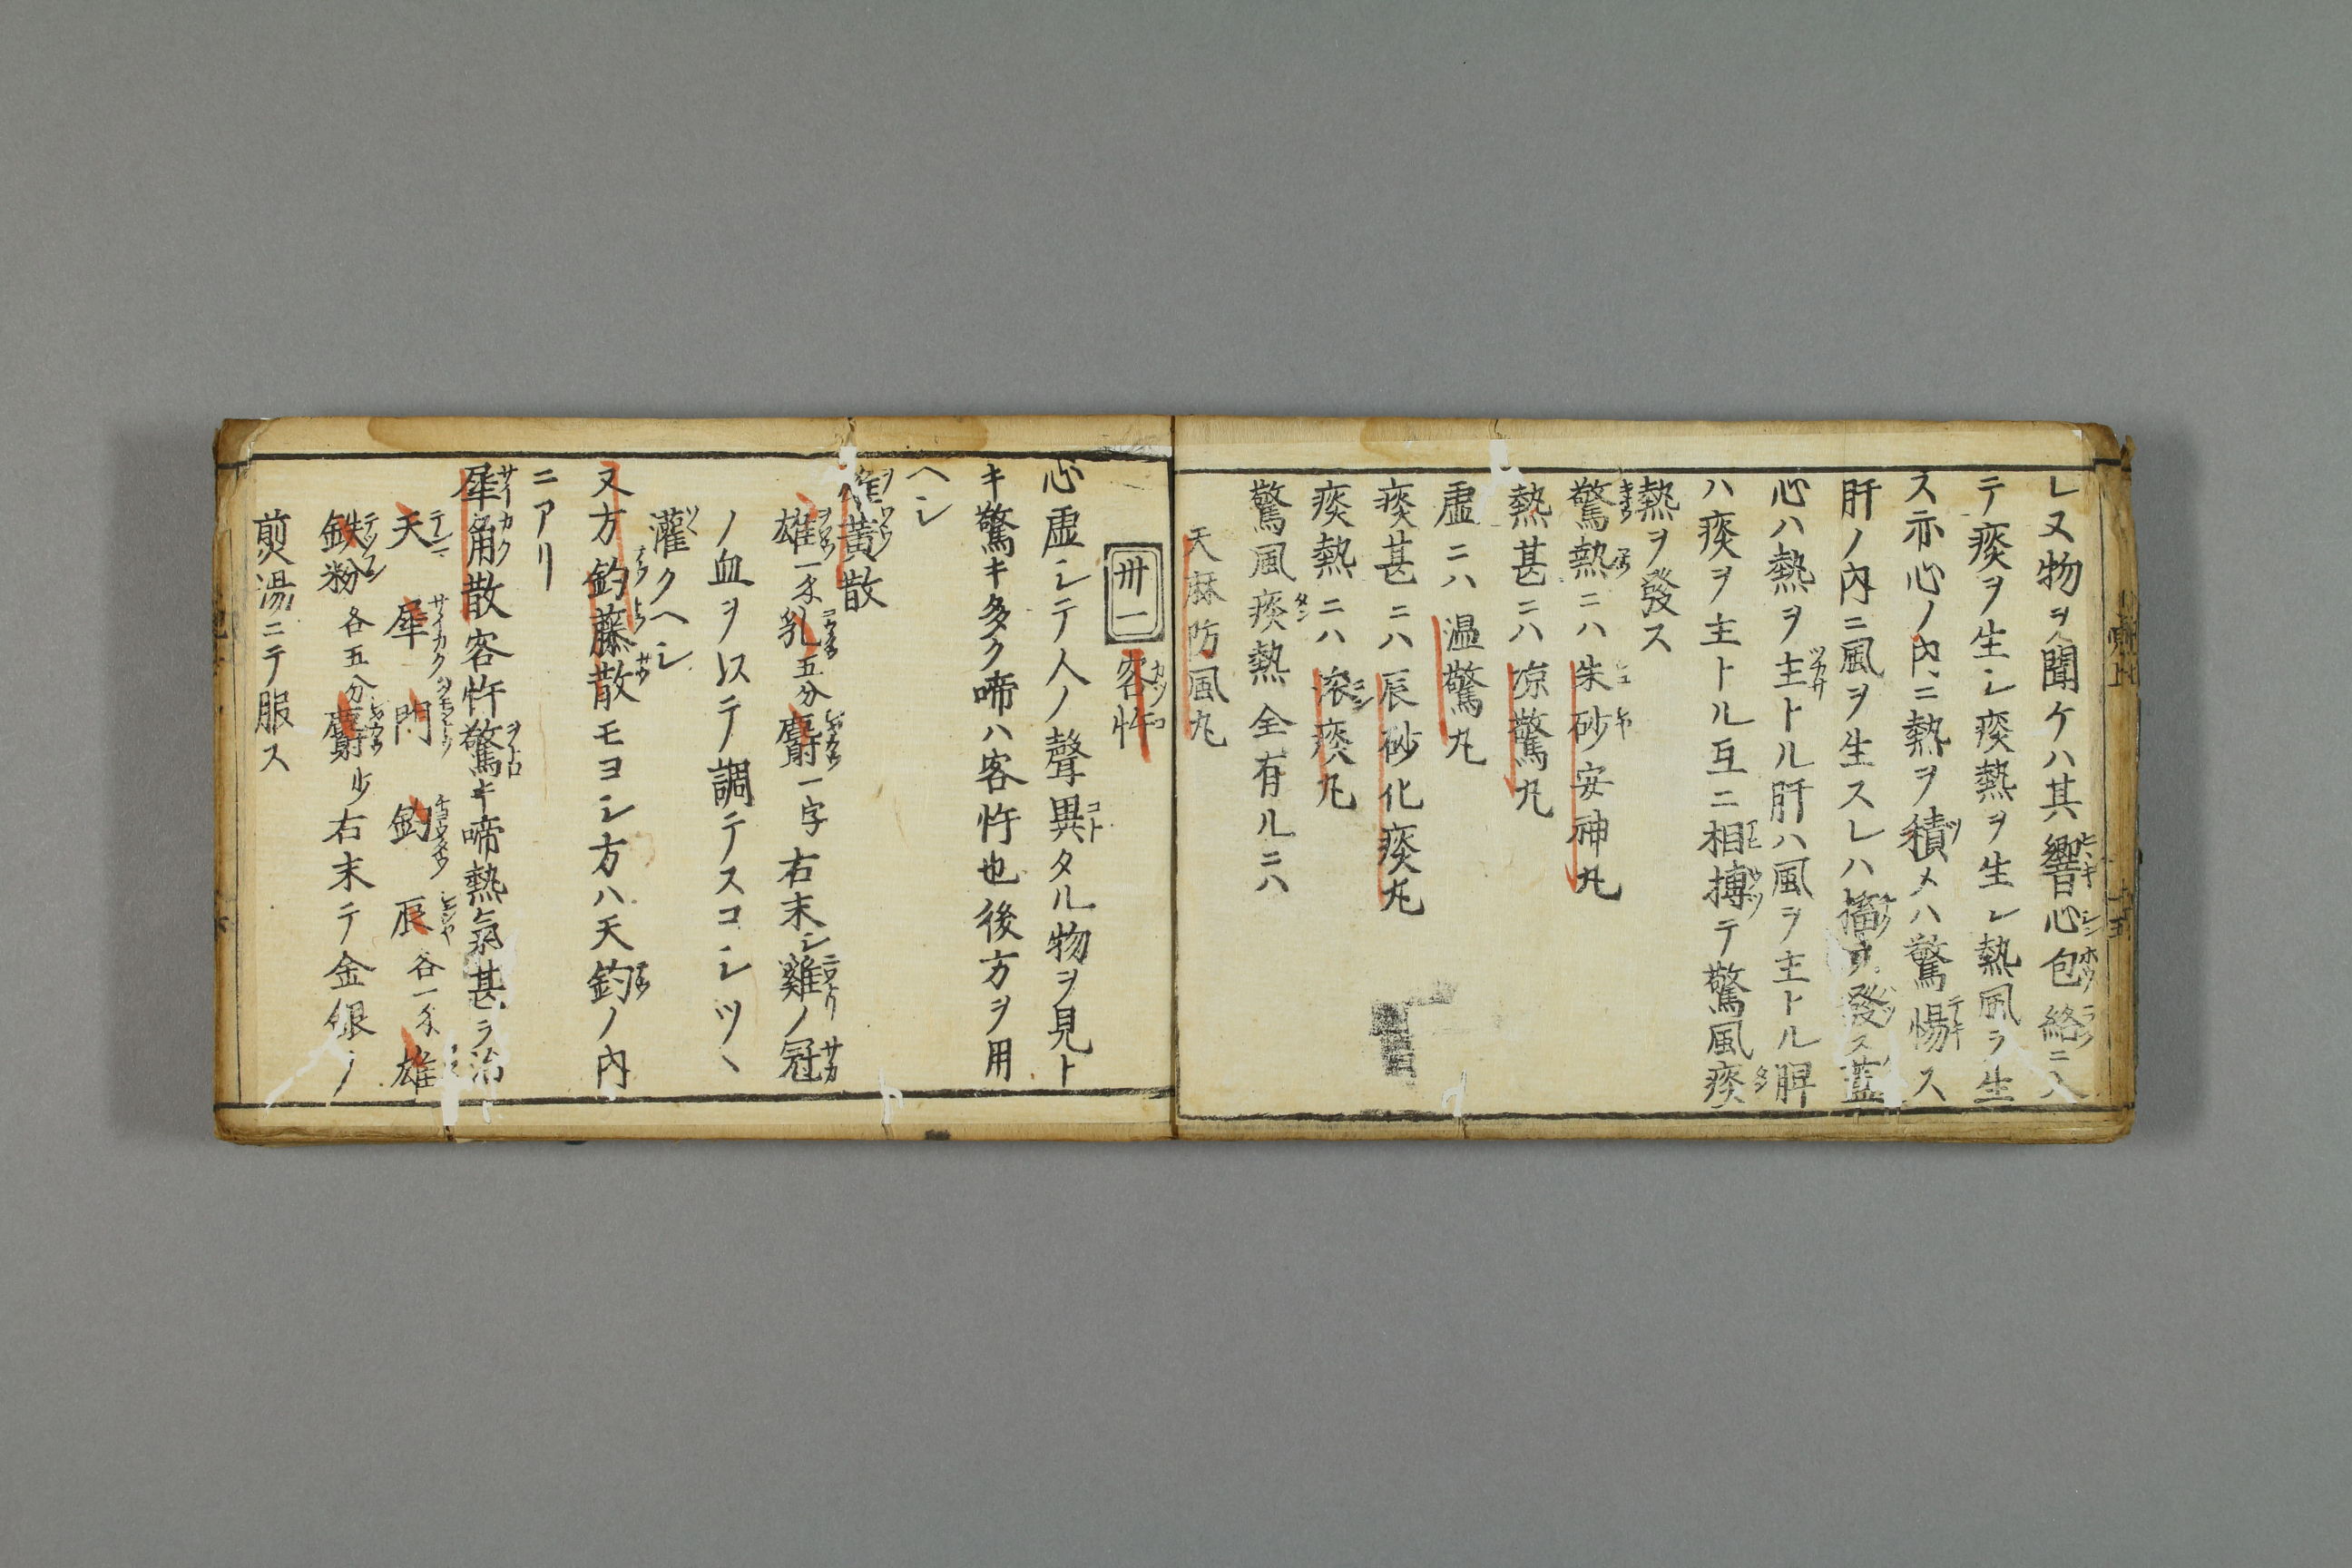 レ又物ヲ聞ケハ其響心包絡ニ入
テ痰ヲ生シ痰熱ヲ生レ熱風ヲ生
ス亦心ノ内ニ熱ヲ積メハ驚惕ス
肝ノ内ニ風ヲ生スレハ搐ヲ發ス蓋
心ハ熱ヲ主トル肝ハ風ヲ主トル脾
ハ痰ヲ主トル互ニ相搏テ驚風痰
熱ヲ發ス
驚熱ニハ朱砂安神丸
熱甚ニハ凉驚丸
虚ニハ温驚丸
痰甚ニハ辰砂化痰丸
痰熱ニハ滚痰丸
驚風痰熱全有ルニハ
天麻防風丸
卅一 客忤
心虚シテ人ノ聲異タル物ヲ見ト
キ驚キ多ク啼ハ客忤也後方ヲ用
ヘシ
雄黄散
雄一匁乳五分麝一字右末シ雞ノ冠
ノ血ヲ以テ調テスコシツヽ
灌クヘシ
又方釣藤散モヨシ方ハ天釣ノ内
ニアリ
犀角散客忤驚キ啼熱氣甚ヲ治
天 犀 門 釣 辰各一匁雄
鉄粉各五分麝少右末テ金銀ノ
煎湯ニテ服ス